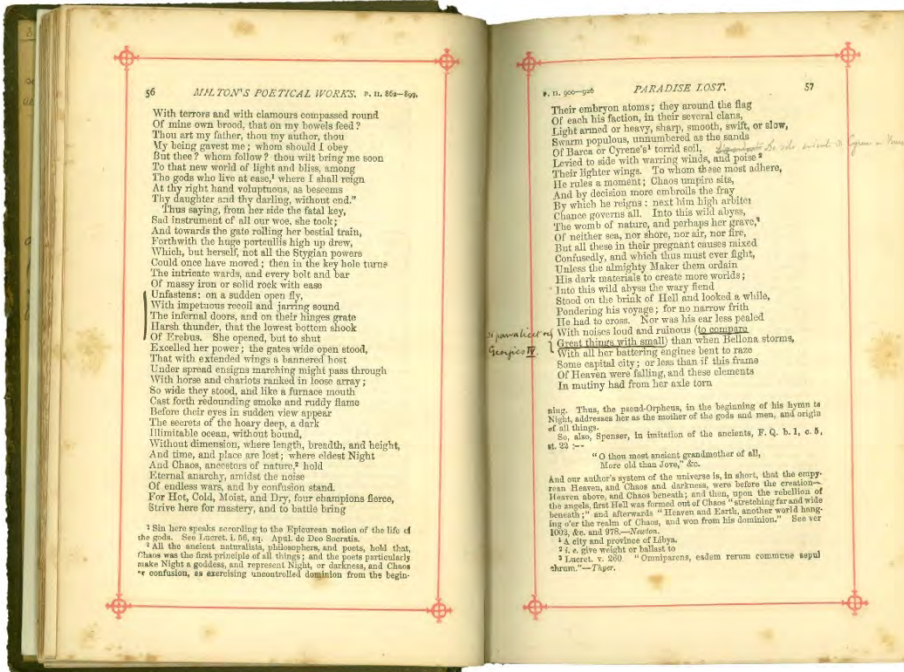 56 MILTON'S POETICAL WORKS. P. II. 862—899.
With terrors and with clamours compassed round
Of mine own brood, that on my bowels feed?
Thou art my father, thou my author, thou
My being gavest me; whom should I obey
But thee? whom follow? thou wilt bring me soon
To that new world of light and bliss, among
The gods who live at ease,¹ where I shall reign
At thy right hand voluptuous, as beseems
Thy daughter and thy darling, without end."
Thus saying, from her side the fatal key,
Sad instrument of all our woe, she took;
And towards the gate rolling her bestial train,
Forthwith the huge portcullis high up drew,
Which, but herself, not all the Stygian powers
Could once have moved; then in the key hole turns
The intricate wards, and every bolt and bar
Of massy iron or solid rock with ease
Unfastens: on a sudden open fly,
With impetuous recoil and jarring sound
The infernal doors, and on their hinges grate
Harsh thunder, that the lowest bottom shook
Of Erebus. She opened, but to shut
Excelled her power; the gates wide open stood,
That with extended wings a bannered host
Under spread ensigns marching might pass through
With horse and chariots ranked in loose array;
So wide they stood, and like a furnace mouth
Cast forth redounding smoke and ruddy flame
Before their eyes in sudden view appear
The secrets of the hoary deep, a dark
Illimitable ocean, without bound,
Without dimension, where length, breadth, and height,
And time, and place are lost; where eldest Night
And Chaos, ancestors of nature,² hold
Eternal anarchy, amidst the noise
Of endless wars, and by confusion stand.
For Hot, Cold, Moist, and Dry, four champions fierce,
Strive here for mastery, and to battle bring
¹ Sin here speaks according to the Epicurean notion of the life of
the gods. See Lucret. i. 56, sq. Apul. de Deo Socratis.
² All the ancient naturalists, philosophers, and poets, hold that,
Chaos was the first principle of all things; and the poets particularly
make Night a goddess, and represent Night, or darkness, and Chaos
or confusion, as exercising uncontrolled dominion from the begin-
P. II. 900—926 PARADISE LOST. 57
Their embryon atoms; they around the flag
Of each his faction, in their several clans,
Light armed or heavy, sharp, smooth, swift, or slow,
Swarm populous, unnumbered as the sands
Of Barca or Cyrene's¹ torrid soil,
Levied to side with warring winds, and poise²
Their lighter wings. To whom these most adhere,
He rules a moment; Chaos umpire sits,
And by decision more embroils the fray
By which he reigns: next him high arbiter
Chance governs all. Into this wild abyss,
The womb of nature, and perhaps her grave,³
Of neither sea, nor shore, nor air, nor fire,
But all these in their pregnant causes mixed
Confusedly, and which thus must ever fight,
Unless the almighty Maker them ordain
His dark materials to create more worlds;
Into this wild abyss the wary fiend
Stood on the brink of Hell and looked a while,
Pondering his voyage; for no narrow frith
He had to cross. Nor was his ear less pealed
With noises loud and ruinous (to compare
Great things with small) than when Bellona storms,
Georgics IV.
With all her battering engines bent to raze
Some capital city; or less than if this frame
Of Heaven were falling, and these elements
In mutiny had from her axle torn
ning. Thus, the pseud-Orpheus, in the beginning of his hymn to
Night, addresses her as the mother of the gods and men, and origin
of all things.
So, also, Spenser, in imitation of the ancients, F. Q. b. 1, c. 5,
st. 22:—
"O thou most ancient grandmother of all,
More old than Jove," &c.
And our author's system of the universe is, in short, that the empy-
rean Heaven, and Chaos and darkness, were before the creation—
Heaven above, and Chaos beneath; and then, upon the rebellion of
the angels, first Hell was formed out of Chaos "stretching far and wide
beneath;" and afterwards "Heaven and Earth, another world hang-
ing o'er the realm of Chaos, and won from his dominion." See ver
1002, &c. and 978.—Newton.
¹ A city and province of Libya.
² i. e. give weight or ballast to
³ Lucret. v. 260 "Omniparens, eadem rerum commune sepul
chrum."—Thyer.